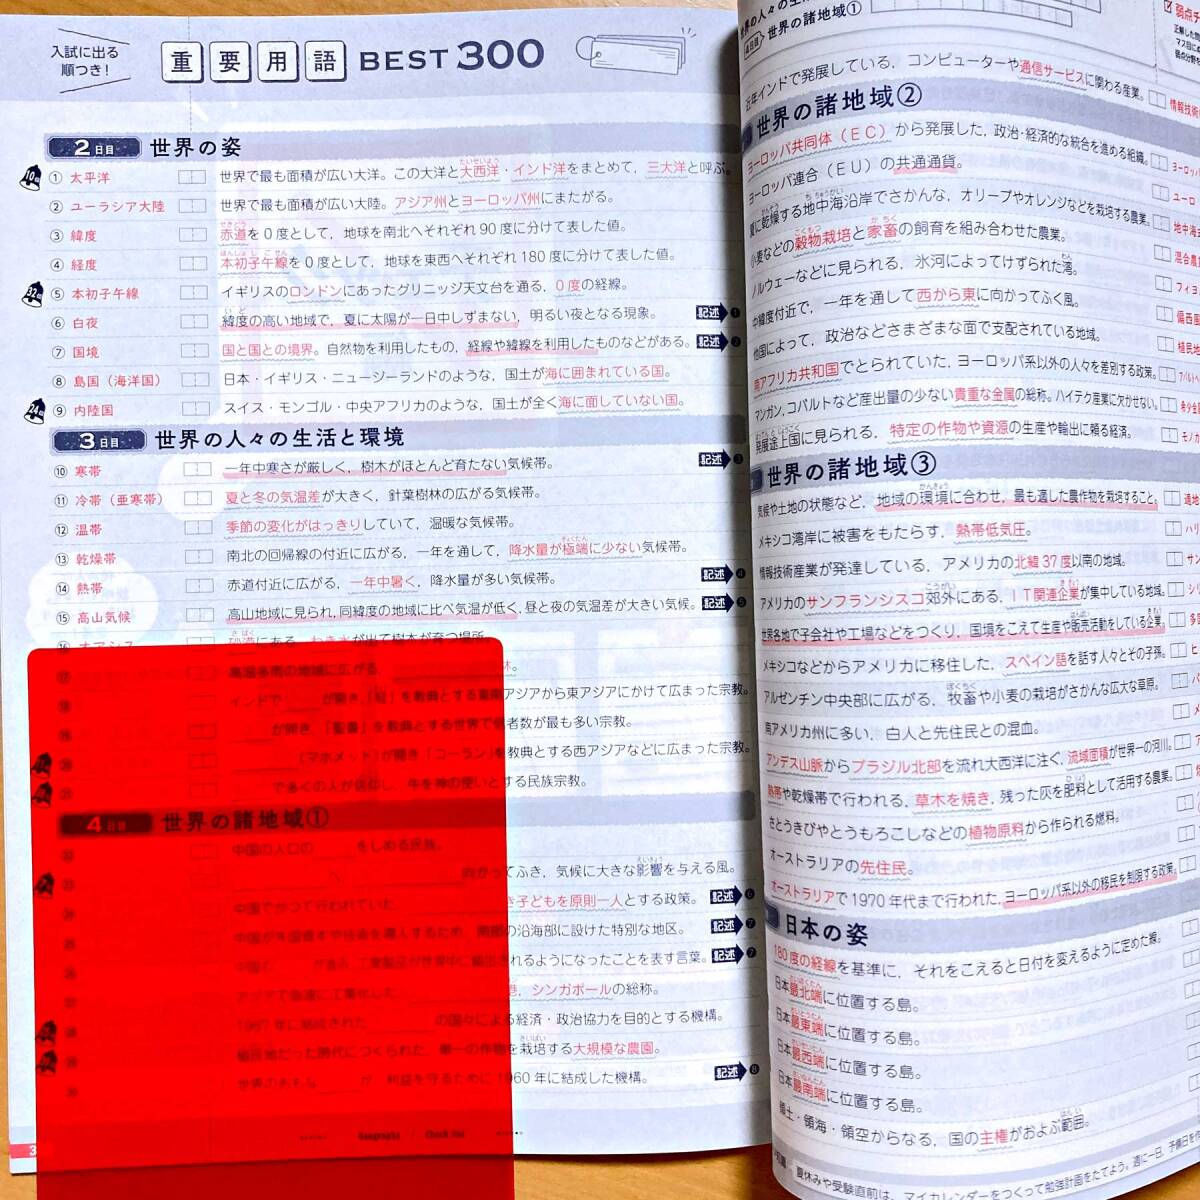 入試に出る
順つき！
重要用語 BEST 300
2日目 世界の姿
10位
① 太平洋 世界で最も面積が広い大洋。この大洋と大西洋・インド洋をまとめて，三大洋と呼ぶ。
② ユーラシア大陸 世界で最も面積が広い大陸。アジア州とヨーロッパ州にまたがる。
③ 緯度 赤道を0度として，地球を南北へそれぞれ90度に分けて表した値。
④ 経度 本初子午線を0度として，地球を東西へそれぞれ180度に分けて表した値。
32位
⑤ 本初子午線 イギリスのロンドンにあったグリニッジ天文台を通る，0度の経線。
⑥ 白夜 緯度の高い地域で，夏に太陽が一日中しずまない，明るい夜となる現象。 記述 ❶
⑦ 国境 国と国との境界。自然物を利用したもの，経線や緯線を利用したものなどがある。 記述 ❷
⑧ 島国（海洋国） 日本・イギリス・ニュージーランドのような，国土が海に囲まれている国。
24位
⑨ 内陸国 スイス・モンゴル・中央アフリカのような，国土が全く海に面していない国。
3日目 世界の人々の生活と環境
⑩ 寒帯 一年中寒さが厳しく，樹木がほとんど育たない気候帯。 記述 ❸
⑪ 冷帯（亜寒帯） 夏と冬の気温差が大きく，針葉樹林の広がる気候帯。
⑫ 温帯 季節の変化がはっきりしていて，温暖な気候帯。
⑬ 乾燥帯 南北の回帰線の付近に広がる，一年を通して，降水量が極端に少ない気候帯。
⑭ 熱帯 赤道付近に広がる，一年中暑く，降水量が多い気候帯。 記述 ❹
⑮ 高山気候 高山地域に見られ，同緯度の地域に比べ気温が低く，昼と夜の気温差が大きい気候。 記述 ❺
⑯ オアシス 砂漠にある，わき水が出て樹木が育つ場所。
⑰ 高温多雨の地域に広がる，
⑱ インドで が開き，「経」を教典とする東南アジアから東アジアにかけて広まった宗教。
が開き，「聖書」を教典とする世界で信者数が最も多い宗教。
⑳ （マホメット）が開き「コーラン」を教典とする西アジアなどに広まった宗教。
㉑ で多くの人が信仰し，牛を神の使いとする民族宗教。
4日目 世界の諸地域①
中国の人口の をしめる民族。
向かってふき，気候に大きな影響を与える風。
中国でかつて行われていた， き子どもを原則一人とする政策。 記述 ❻
中国が外国資本や技術を導入するため，南部の沿海部に設けた特別な地区。 記述 ❼
中国の が進み，工業製品が世界中に輸出されるようになったことを表す言葉。 記述 ❼
アジアで急速に工業化した， 港，シンガポールの総称。
1967年に結成された， の国々による経済・政治協力を目的とする機構。
植民地だった時代につくられた，単一の作物を栽培する大規模な農園。
世界のおもな が，利益を守るために1960年に結成した機構。 記述 ❽
Geography / Check list
世界の諸地域①
近年インドで発展している，コンピューターや通信サービスに関わる産業。 情報技術
世界の諸地域②
ヨーロッパ共同体（EC）から発展した，政治・経済的な統合を進める組織。
ヨーロッパ連合（EU）の共通通貨。 ユーロ
夏に乾燥する地中海沿岸でさかんな，オリーブやオレンジなどを栽培する農業。 地中海
小麦などの穀物栽培と家畜の飼育を組み合わせた農業。 混合農
ノルウェーなどに見られる，氷河によってけずられた湾。 フィヨ
中緯度付近で，一年を通して西から東に向かってふく風。 偏西風
他国によって，政治などさまざまな面で支配されている地域。 植民地
南アフリカ共和国でとられていた，ヨーロッパ系以外の人々を差別する政策。 アパルトヘ
マンガン，コバルトなど産出量の少ない貴重な金属の総称。ハイテク産業に欠かせない。 希少金
発展途上国に見られる，特定の作物や資源の生産や輸出に頼る経済。 モノカ
世界の諸地域③
気候や土地の状態など，地域の環境に合わせ，最も適した農作物を栽培すること。 適地
メキシコ湾岸に被害をもたらす，熱帯低気圧。 ハリ
情報技術産業が発達している，アメリカの北緯37度以南の地域。 サン
アメリカのサンフランシスコ郊外にある，IT関連企業が集中している地域。 シリ
世界各地で子会社や工場などをつくり，国境をこえて生産や販売活動をしている企業。 多国
メキシコなどからアメリカに移住した，スペイン語を話す人々とその子孫。 ヒ
アルゼンチン中央部に広がる，牧畜や小麦の栽培がさかんな広大な草原。 パ
南アメリカ州に多い，白人と先住民との混血。 メ
アンデス山脈からブラジル北部を流れ大西洋に注ぐ，流域面積が世界一の河川。 ア
熱帯や乾燥帯で行われる，草木を焼き，残った灰を肥料として活用する農業。
さとうきびやとうもろこしなどの植物原料から作られる燃料。
オーストラリアの先住民。
オーストラリアで1970年代まで行われた，ヨーロッパ系以外の移民を制限する政策。
日本の姿
180度の経線を基準に，それをこえると日付を変えるように定めた線。
日本最北端に位置する島。
日本最東端に位置する島。
日本最西端に位置する島。
日本最南端に位置する島。
領土・領海・領空からなる，国の主権がおよぶ範囲。
夏休みや受験直前は，マイカレンダーをつくって勉強計画をたてよう。週に一日，予備日を作